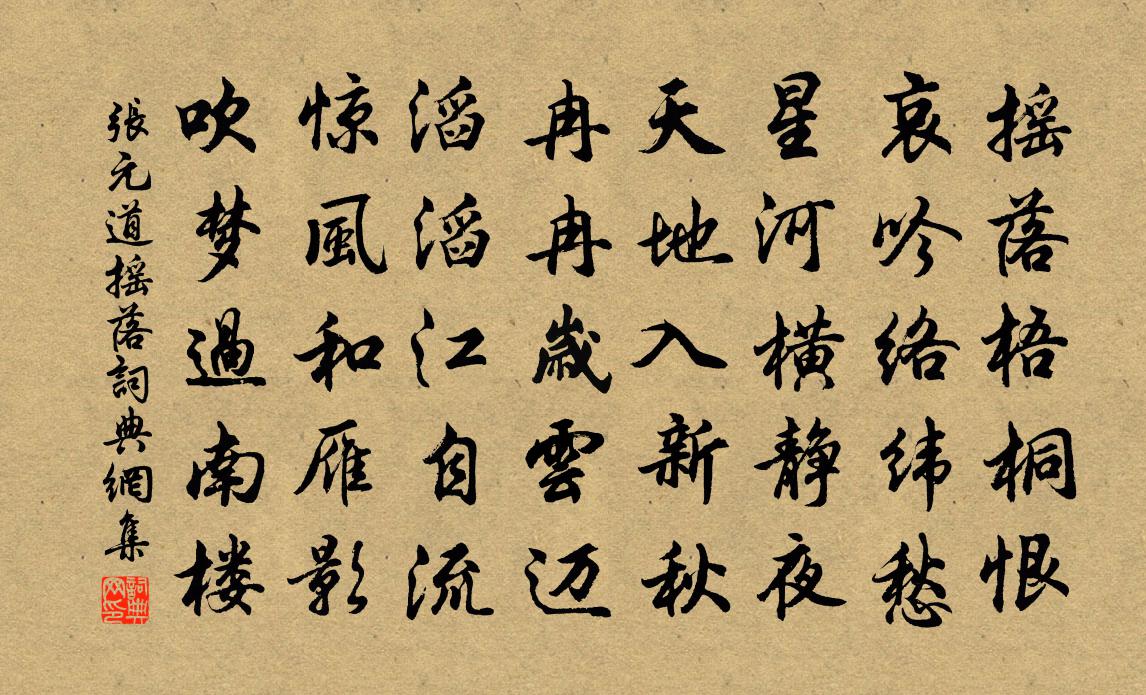 摇落梧桐恨
哀吟络纬愁
星河横静夜
天地入新秋
冉冉歳雲迈
滔滔江自流
惊風和雁影
吹梦過南楼
張元道摇落詞典網集
詞典网印